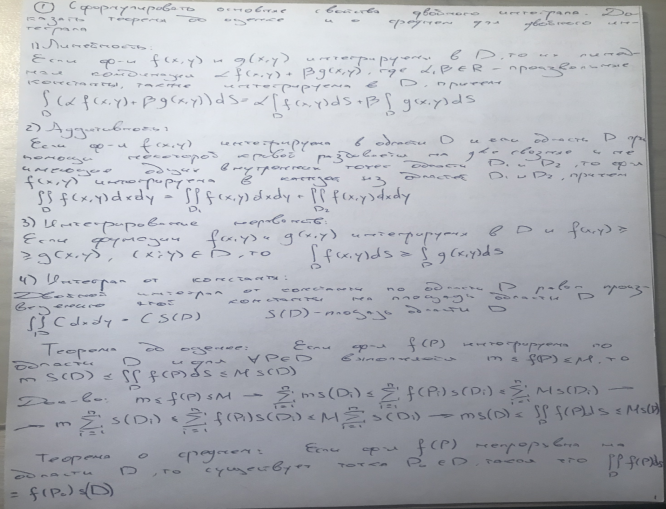 ① Сформулировать основные свойства двойного интеграла. До-
казать теоремы об оценке и о среднем для двойного ин-
теграла
1) Линейность:
Если ф-и f(x,y) и g(x,y) интегрируемы в D, то их линей-
ная комбинация αf(x,y) + βg(x,y), где α,β∈R - произвольные
константы, также интегрируема в D, причем
∫_D (αf(x,y) + βg(x,y))dS = α∫_D f(x,y)dS + β∫_D g(x,y)dS
2) Аддитивность:
Если ф-я f(x,y) интегрируема в области D и если область D при
помощи некоторой кривой разбивается на две связные и не
имеющие общих внутренних точек области D₁ и D₂, то ф-я
f(x,y) интегрируема в каждой из областей D₁ и D₂, причем
∬_D f(x,y)dxdy = ∬_D₁ f(x,y)dxdy + ∬_D₂ f(x,y)dxdy
3) Интегрирование неравенств:
Если функции f(x,y) и g(x,y) интегрируемы в D и f(x,y) ≥
≥ g(x,y), (x;y)∈D, то ∫_D f(x,y)dS ≥ ∫_D g(x,y)dS
4) Интеграл от константы:
Двойной интеграл от константы по области D равен произ-
ведению этой константы на площадь области D
∬_D Cdxdy = CS(D) S(D) - площадь области D
Теорема об оценке: Если ф-я f(P) интегрируема по
области D и для ∀P∈D выполняется m ≤ f(P) ≤ M, то
m S(D) ≤ ∬_D f(P)dS ≤ M S(D)
Док-во: m ≤ f(P) ≤ M → ∑_{i=1}^n mS(Di) ≤ ∑_{i=1}^n f(Pi)S(Di) ≤ ∑_{i=1}^n MS(Di) →
→ m ∑_{i=1}^n S(Di) ≤ ∑_{i=1}^n f(Pi)S(Di) ≤ M ∑_{i=1}^n S(Di) → mS(D) ≤ ∬_D f(P)dS ≤ MS(D)
Теорема о среднем: Если ф-я f(P) непрерывна на
области D, то существует точка P₀∈D, такая что ∬_D f(P)dS
= f(P₀)S(D)